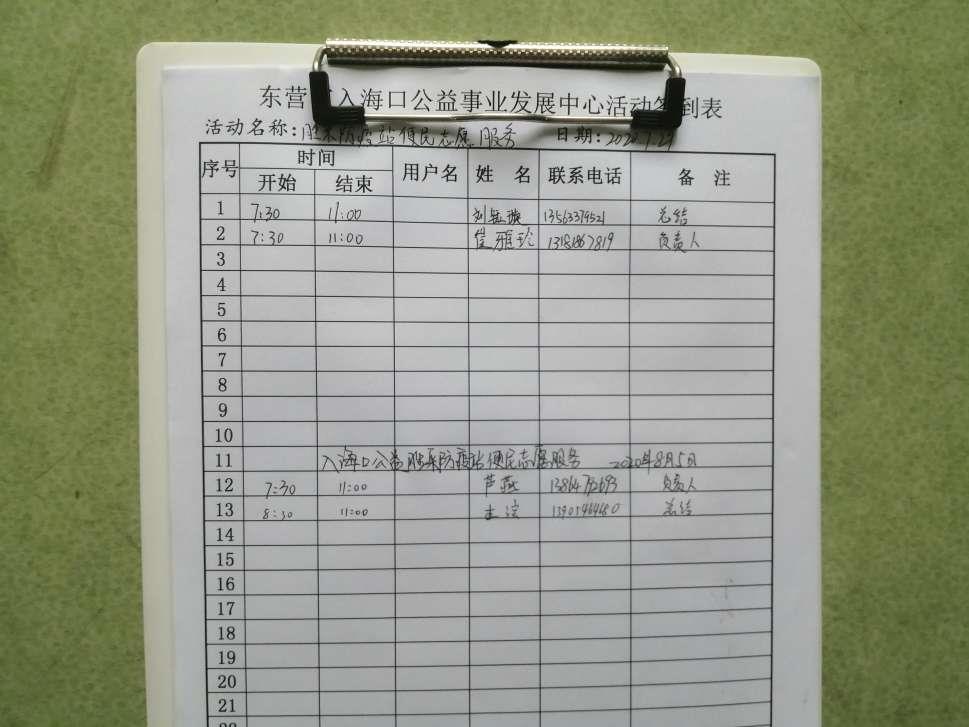 东营 入海口公益事业发展中心活动签到表
活动名称: 胜采防疫站便民志愿服务 日期: 2020.7.29
序号 时间 用户名 姓 名 联系电话 备 注
开始 结束
1 7:30 11:00 总结
2 7:30 11:00 负责人
3
4
5
6
7
8
9
10
11 入海口公益胜采防疫站便民志愿服务 2020年8月5日
12 7:30 11:00 芦燕 负责人
13 8:30 11:00 总结
14
15
16
17
18
19
20
21